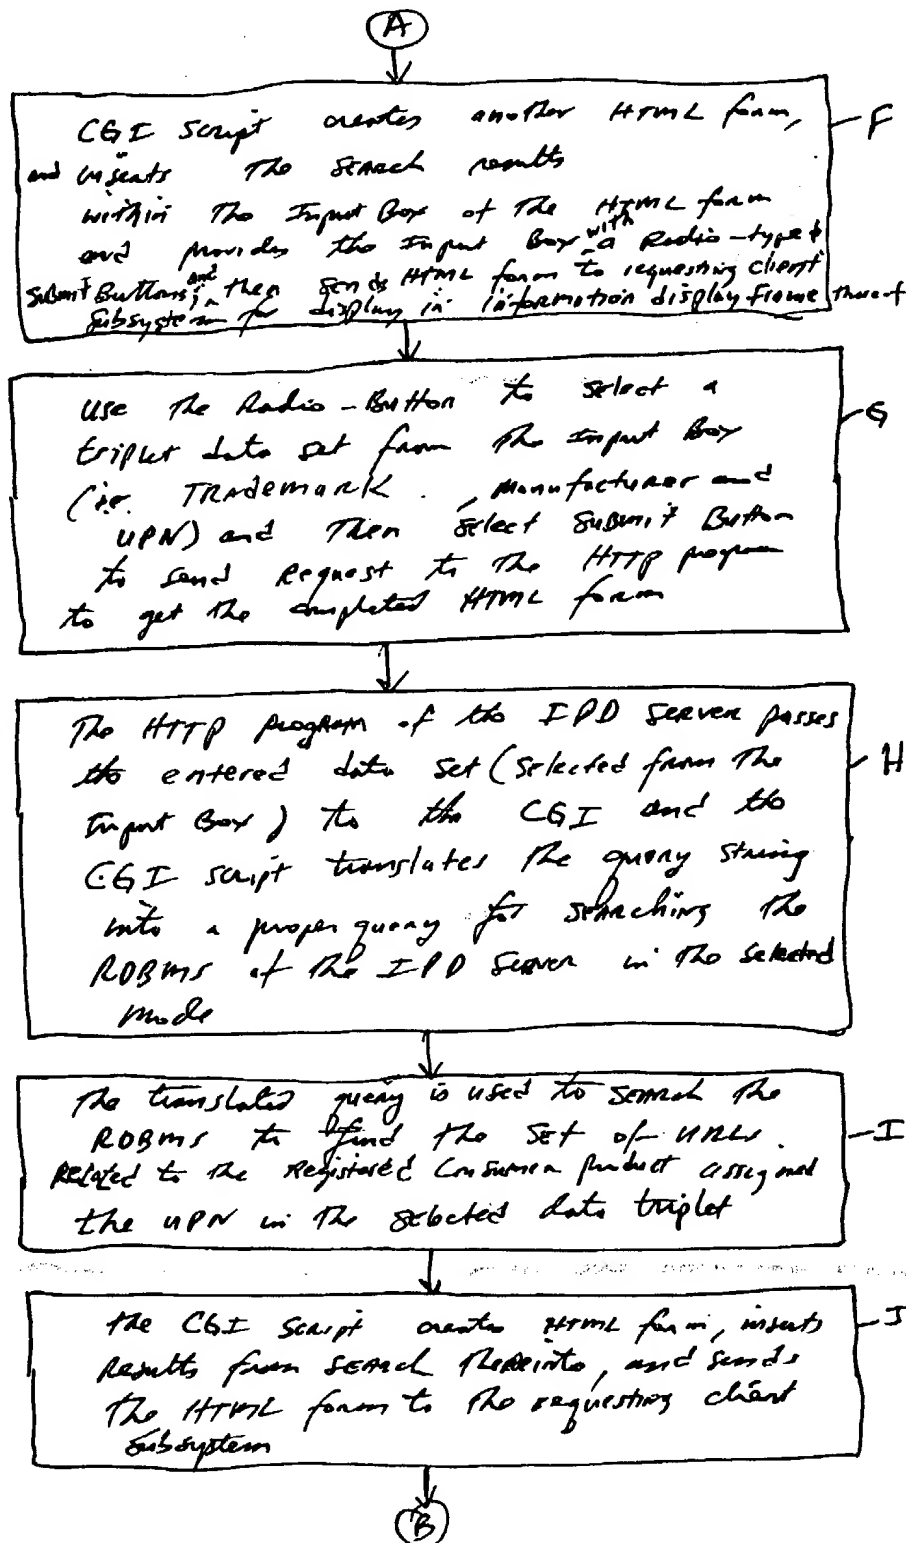 A
CGI Script creates another HTML form, F
and inserts The SEARCH results
within The Input Box of The HTML form
and provides the Input Box with a Radio-type &
Submit Buttons; and then sends HTML form to requesting client
Subsystem for display in information display frame thereof
Use The Radio-Button to select a
triplet data set from The Input Box G
(ie. TRADEMARK, Manufacturer and
UPN) and Then Select Submit Button
to send Request to The HTTP program
to get the completed HTML form
The HTTP program of the IPD Server passes
the entered data set (selected from The H
Input Box) to the CGI and the
CGI script translates The query string
into a proper query for searching The
RDBMS of The IPD Server in The selected
mode
The translated query is used to SEARCH The
RDBMS to find the set of URLs I
Related to the Registered Consumer product assigned
the UPN in The selected data triplet
the CGI Script creates HTML form, inserts J
Results from SEARCH Thereinto, and sends
The HTML form to The requesting client
Subsystem
B